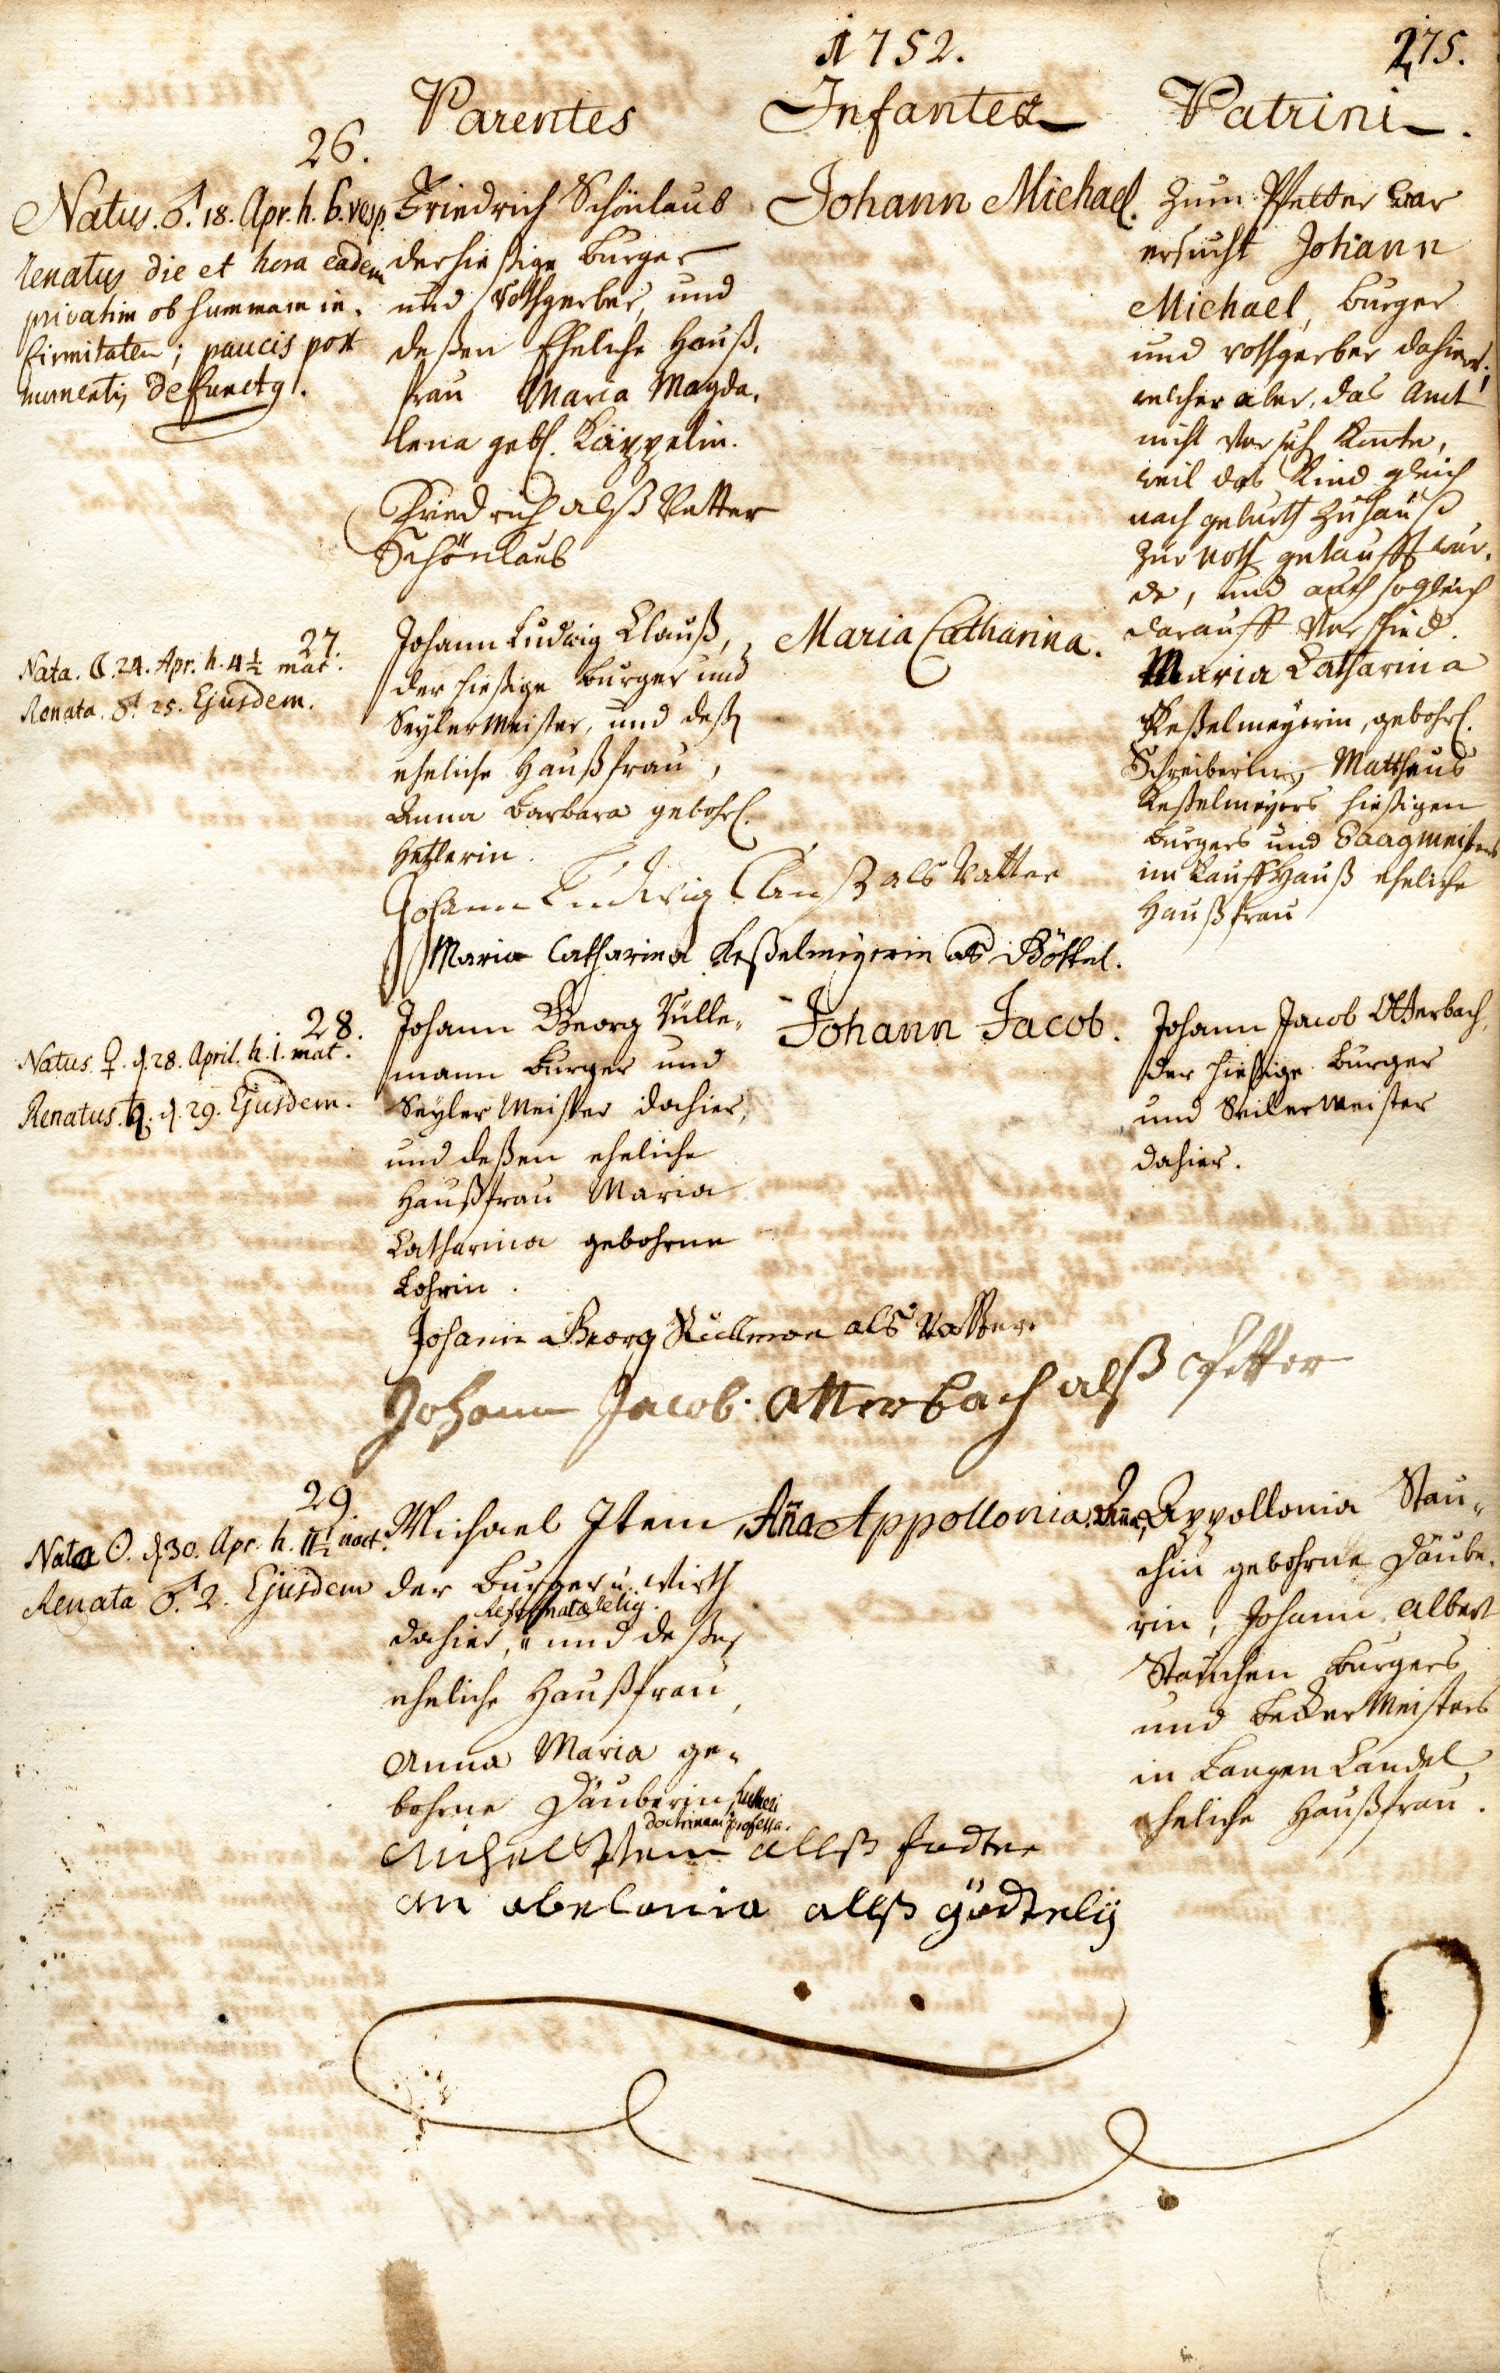 1752.
275.
Parentes
Infantes
Patrini.
26.
Natus. ♂. 18. Apr. h. 6. vesp.
renatus die et hora eadem
privatim ob summam in-
firmitatem; paucis post
momentis defunctus.
Friedrich Schönlaub
der hießige burger
und rothgerber, und
deßen Eheliche Hauß-
frau Maria Magda-
lena gebl. Käppelin.
Friedrich alß Vatter
Schönlaub
Johann Michael.
Zum Pfetter war
ersucht Johann
Michael, burger
und rothgerber dahier,
welcher aber, das Amt
nicht konte,
weil das Kind gleich
nach geburth zu hauß
zur noth getaufft wur-
de, und auch sogleich
darauff verschied.
27.
Nata. ☾. 24. Apr. h. 4½ mat.
Renata. ♂. 25. Ejusdem.
Johann Ludwig Clauß,
der hießige burger und
Seylermeister, und deßen
eheliche Haußfrau,
Anna Barbara gebohrl.
Hetzlerin.
Johann Ludwig Clauß als Vatter
Maria Catharina Keßelmeyerin als Göttel.
Maria Catharina.
Maria Catharina
Keßelmeyerin, gebohrl.
Schreiberin, Mattheus
Keßelmeyers hießigen
burgers und Waagmeisters
im Kauffhauß eheliche
Haußfrau
28.
Natus ♀. d. 28. April. h. 1. mat.
Renatus. ♄. d. 29. Ejusdem.
Johann Georg Rülle-
mann burger und
Seyler Meister dahier,
und deßen eheliche
Haußfrau Maria
Catharina gebohrne
Lohrin.
Johann Georg Rüllman als Vatter.
Johann Jacob Otterbach alß Petter
Johann Jacob.
Johann Jacob Otterbach,
der hießige burger
und Seiler Meister
dahier.
29.
Nata ☉. d. 30. Apr. h. 11½ noct.
Renata ♂. 2. Ejusdem
Michael Item,
der burger u. Wirth
Reformatae relig.
dahier, und deßen
eheliche Haußfrau,
Anna Maria ge-
bohrne Däuberin, Lutheri
doctrinam professa.
Michel Item allß fadter
an abelonia allß gödtely
Aña Appollonia.
Anna Appollonia Stau-
chin gebohrne Däube-
rin, Johann Albert
Stauchen burgers
und becker Meisters
in Langen Candel
eheliche Haußfrau.